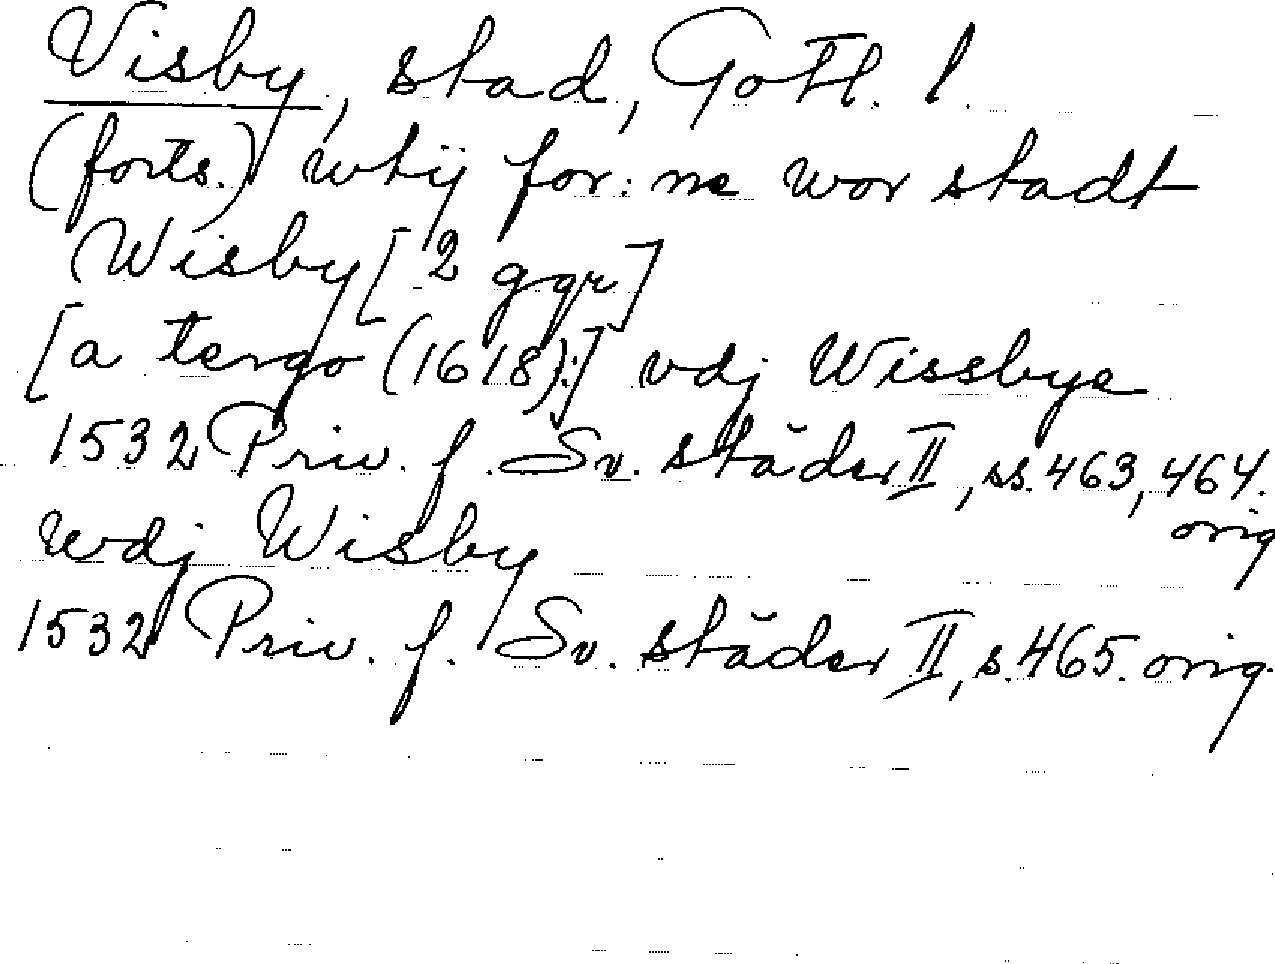 Visby, stad, Gotl. l.
(forts.) wtij for: ne wor stadt
Wisby [2 ggr]
[a tergo (1618):] vdj Wissbye
1532 Priv. f. Sv. städer II, ss. 463, 464.
orig
wdj Wisby
1532 Priv. f. Sv. städer II, s. 465. orig.